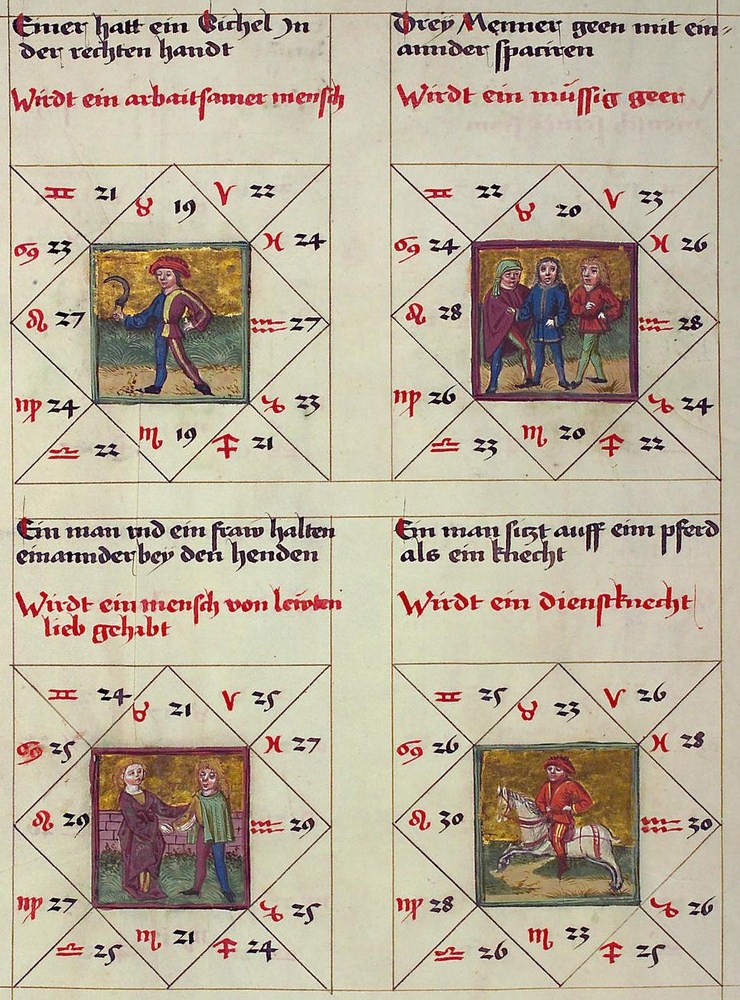 Einer hatt ein Sichel Jn
der rechten handt
Wirdt ein arbaitsamer mensch
♊ 21 ♉ 19 ♈ 22
♋ 23 ♓ 24
♌ 27 ♒ 27
♍ 24 ♑ 23
♎ 22 ♏ 19 ♐ 21
Drey Menner geen mit ein-
annder spaciren
Wirdt ein müssig geer
♊ 22 ♉ 20 ♈ 23
♋ 24 ♓ 26
♌ 28 ♒ 28
♍ 26 ♑ 24
♎ 23 ♏ 20 ♐ 22
Ein man vnd ein fraw halten
einannder bey den henden
Wirdt ein mensch von lewten
lieb gehabt
♊ 24 ♉ 21 ♈ 25
♋ 25 ♓ 27
♌ 29 ♒ 29
♍ 27 ♑ 25
♎ 25 ♏ 21 ♐ 24
Ein man sitzt auff eim pferd
als ein knecht
Wirdt ein dienstknecht
♊ 25 ♉ 23 ♈ 26
♋ 26 ♓ 28
♌ 30 ♒ 30
♍ 28 ♑ 26
♎ 26 ♏ 23 ♐ 25